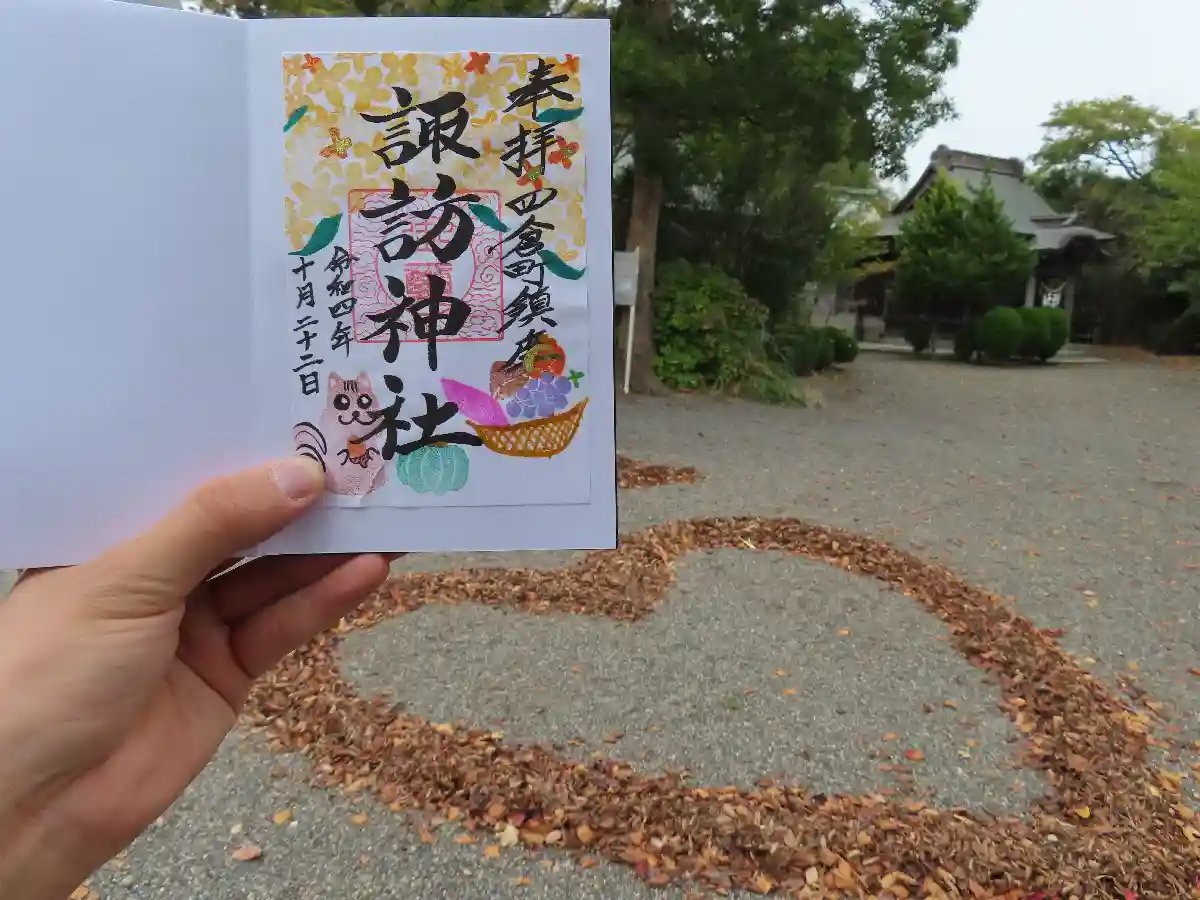 奉拝 四倉町鎮座
諏訪神社
令和四年
十月二十二日